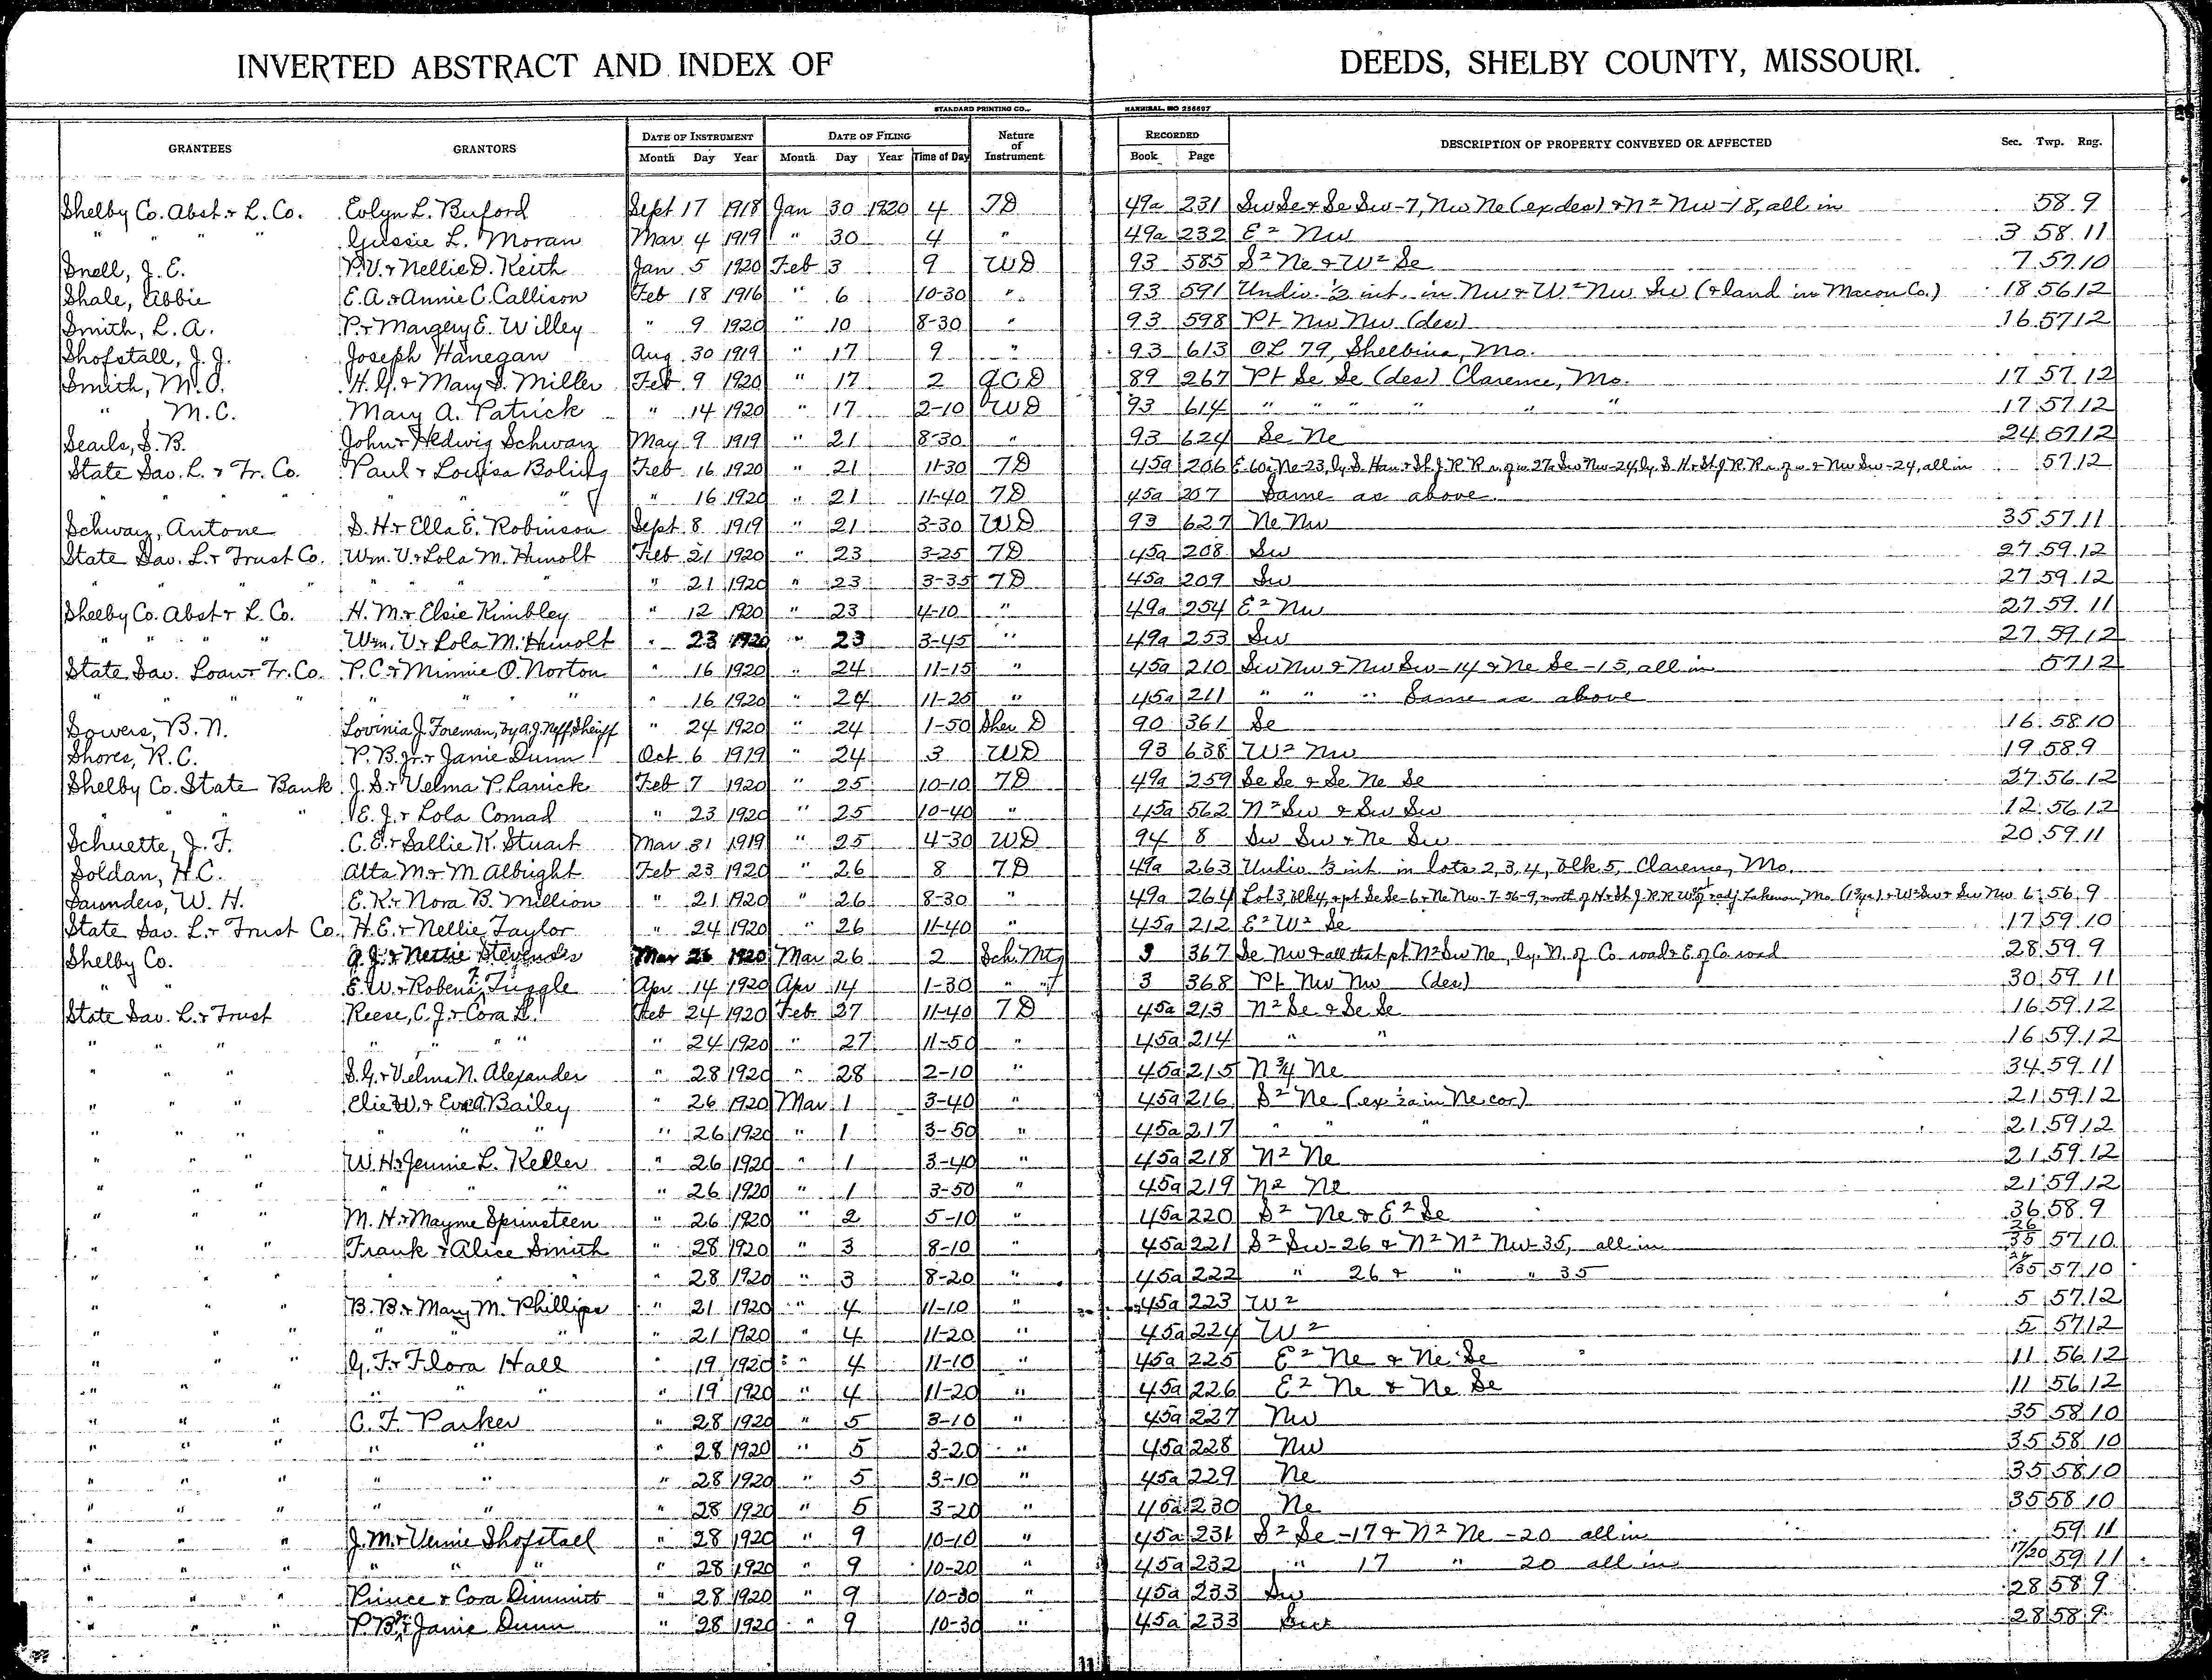 INVERTED ABSTRACT AND INDEX OF DEEDS, SHELBY COUNTY, MISSOURI.
STANDARD PRINTING CO., HANNIBAL, MO 256697
GRANTEES GRANTORS DATE OF INSTRUMENT Month Day Year DATE OF FILING Month Day Year Time of Day Nature of Instrument RECORDED Book Page DESCRIPTION OF PROPERTY CONVEYED OR AFFECTED Sec. Twp. Rng.
Shelby Co. Abst. & L. Co. Evlyn L. Buford Sept 17 1918 Jan 30 1920 4 TD 49a 231 Sw Se & Se Sw-7, Nw Ne (ex des) & N2 Nw-18, all in 58 9
" " " " Gussie L. Moran Mar 4 1919 " 30 4 " 49a 232 E2 Nw 3 58 11
Snell, J. E. P. V. & Nellie D. Keith Jan 5 1920 Feb 3 9 WD 93 585 S2 Ne & W2 Se 7 57 10
Shale, Abbie E. A. & Annie C. Callison Feb 18 1916 " 6 10-30 " 93 591 Undiv. ½ int. in Nw & W2 Nw Sw (& land in Macon Co.) 18 56 12
Smith, L. A. P. & Margery E. Willey " 9 1920 " 10 8-30 " 93 598 Pt Nw Nw (des) 16 57 12
Shofstall, J. J. Joseph Hanegan Aug 30 1919 " 17 9 " 93 613 OL 79, Shelbina, Mo.
Smith, M. O. H. G. & Mary S. Miller Feb 9 1920 " 17 2 QCD 89 267 Pt Se Se (des) Clarence, Mo. 17 57 12
" M. C. Mary A. Patrick " 14 1920 " 17 2-10 WD 93 614 " " " " " " 17 57 12
Searls, S. B. John & Hedwig Schwarz May 9 1919 " 21 8-30 " 93 624 Se Ne 24 57 12
State Sav. L. & Tr. Co. Paul & Louisa Boling Feb 16 1920 " 21 11-30 TD 45a 206 E 60a Ne-23, ly. S. Han. & St. J. R R r. of w. 27a Sw Nw-24, ly. S. H. & St. J. R. R r. of w. & Nw Sw-24, all in 57 12
" " " " " " " " 16 1920 " 21 11-40 TD 45a 207 Same as above
Schwarz, Antone S. H. & Ella E. Robinson Sept 8 1919 " 21 3-30 WD 93 627 Ne Nw 35 57 11
State Sav. L. & Trust Co. Wm. V. & Lola M. Hunolt Feb 21 1920 " 23 3-25 TD 45a 208 Sw 27 59 12
" " " " " " " " " 21 1920 " 23 3-35 TD 45a 209 Sw 27 59 12
Shelby Co. Abst & L. Co. H. M. & Elsie Kimbley " 12 1920 " 23 4-10 " 49a 254 E2 Nw 27 59 11
" " " " Wm. V. & Lola M. Hunolt " 23 1920 " 23 3-45 " 49a 253 Sw 27 59 12
State Sav. Loan & Tr. Co. P. C. & Minnie O. Norton " 16 1920 " 24 11-15 " 45a 210 Sw Nw & Nw Sw-14 & Ne Se-15, all in 57 12
" " " " " " " " 16 1920 " 24 11-25 " 45a 211 " " " Same as above
Sowers, B. N. Lovinia J. Foreman, by A. J. Neff, Sheriff " 24 1920 " 24 1-50 Sher D 90 361 Se 16 58 10
Shores, R. C. P. B. Jr. & Janie Dunn Oct 6 1919 " 24 3 WD 93 638 W2 Nw 19 58 9
Shelby Co. State Bank J. S. & Velma P. Larrick Feb 7 1920 " 25 10-10 TD 49a 259 Se Se & Se Ne Se 27 56 12
" " " " E. J. & Lola Conrad " 23 1920 " 25 10-40 " 45a 562 N2 Sw & Sw Sw 12 56 12
Schuette, J. F. C. E. & Sallie K. Stuart Mar 31 1919 " 25 4-30 WD 94 8 Sw Sw & Ne Sw 20 59 11
Soldan, H. C. Alta M. & M. Albright Feb 23 1920 " 26 8 TD 49a 263 Undiv ⅓ int in lots 2, 3, 4, blk. 5, Clarence, Mo.
Saunders, W. H. E. K. & Nora B. Million " 21 1920 " 26 8-30 " 49a 264 Lot 3, blk 4, & pt Se Se-6 & Ne Nw-7-56-9, north of H. & St. J. R R W of & adj Lakenan, Mo. & W2 Sw & Sw Nw 6 56 9
State Sav. L. & Trust Co. H. E. & Nellie Taylor " 24 1920 " 26 11-40 " 45a 212 E2 W2 Se 17 59 10
Shelby Co. A. J. & Nettie Stevens Mar 26 1920 Mar 26 2 Sch. Mtg 3 367 Se Nw & all that pt N2 Sw Ne, ly. N. of Co. road & E of Co. road 28 59 9
" " E. W. & Robena F. Tuggle Apr 14 1920 Apr 14 1-30 " " 3 368 Pt Nw Nw (des) 30 59 11
State Sav. L. & Trust Reese, C. J. & Cora L. Feb 24 1920 Feb 27 11-40 TD 45a 213 N2 Se & Se Se 16 59 12
" " " " " " " " 24 1920 " 27 11-50 " 45a 214 " " 16 59 12
" " " S. G. & Velma N. Alexander " 28 1920 " 28 2-10 " 45a 215 N ¾ Ne 34 59 11
" " " Elie W. & Eva A. Bailey " 26 1920 Mar 1 3-40 " 45a 216 S2 Ne (ex ½a in Ne cor) 21 59 12
" " " " " " " 26 1920 " 1 3-50 " 45a 217 " " " 21 59 12
" " " W. H. & Jennie L. Keller " 26 1920 " 1 3-40 " 45a 218 N2 Ne 21 59 12
" " " " " " " 26 1920 " 1 3-50 " 45a 219 N2 Ne 21 59 12
" " " M. H. & Mayme Sprinsteen " 26 1920 " 2 5-10 " 45a 220 S2 Ne & E2 Se 36 58 9
" " " Frank & Alice Smith " 28 1920 " 3 8-10 " 45a 221 S2 Sw-26 & N2 N2 Nw-35, all in 26 35 57 10
" " " " " " " 28 1920 " 3 8-20 " 45a 222 " 26 & " " 35 26/35 57 10
" " " B. B. & Mary M. Phillips " 21 1920 " 4 11-10 " 45a 223 W2 5 57 12
" " " " " " " 21 1920 " 4 11-20 " 45a 224 W2 5 57 12
" " " G. F. & Flora Hall " 19 1920 " 4 11-10 " 45a 225 E2 Ne & Ne Se 11 56 12
" " " " " " " 19 1920 " 4 11-20 " 45a 226 E2 Ne & Ne Se 11 56 12
" " " C. F. Parker " 28 1920 " 5 3-10 " 45a 227 Nw 35 58 10
" " " " " " 28 1920 " 5 3-20 " 45a 228 Nw 35 58 10
" " " " " " 28 1920 " 5 3-10 " 45a 229 Ne 35 58 10
" " " " " " 28 1920 " 5 3-20 " 45a 230 Ne 35 58 10
" " " J. M. & Vernie Shofstall " 28 1920 " 9 10-10 " 45a 231 S2 Se-17 & N2 Ne-20 all in 59 11
" " " " " " " 28 1920 " 9 10-20 " 45a 232 " 17 " 20 all in 17/20 59 11
" " " Prince & Cora Dimmitt " 28 1920 " 9 10-30 " 45a 233 Sw 28 58 9
" " " P. B. Jr. & Janie Dunn " 28 1920 " 9 10-30 " 45a 233 28 58 9